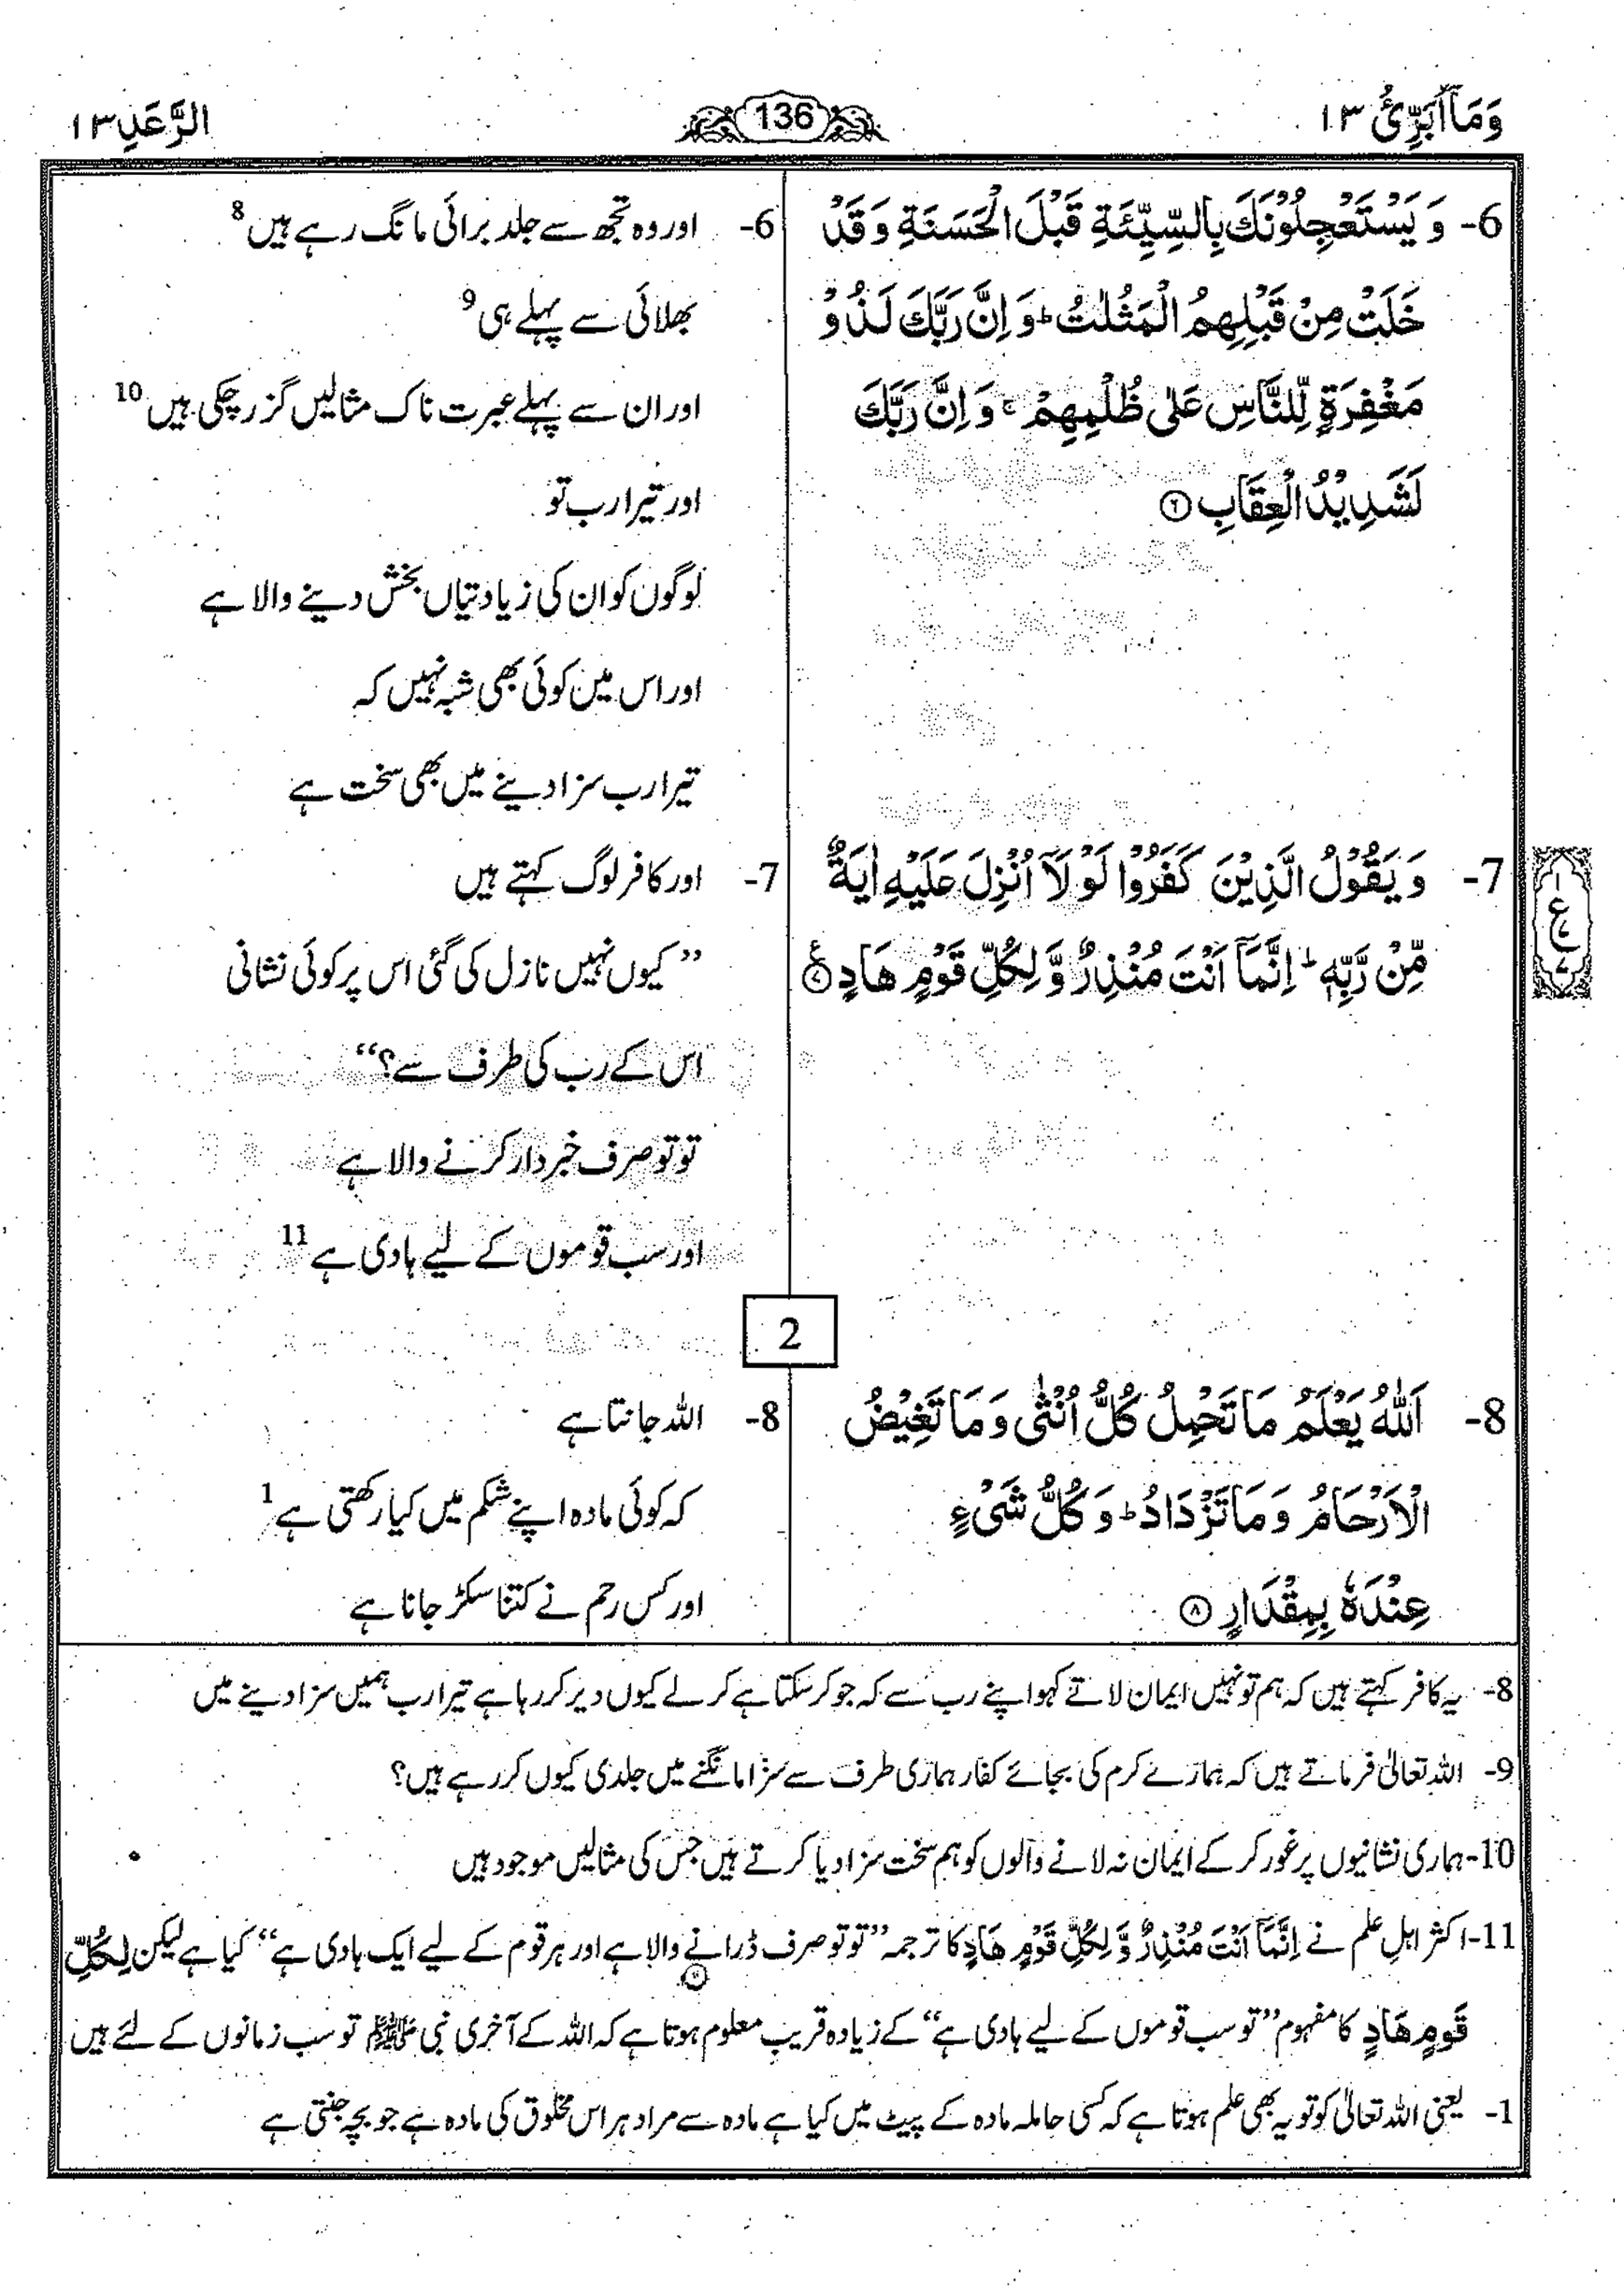 وَمَآ اُبَرِّئُ ١٣
136
الرَّعْدِ ١٣
6- وَ يَسْتَعْجِلُوْنَكَ بِالسَّيِّئَةِ قَبْلَ الْحَسَنَةِ وَ قَدْ
خَلَتْ مِنْ قَبْلِهِمُ الْمَثُلٰتُ ؕ وَ اِنَّ رَبَّكَ لَذُوْ
مَغْفِرَةٍ لِّلنَّاسِ عَلٰى ظُلْمِهِمْ ۚ وَ اِنَّ رَبَّكَ
لَشَدِيْدُ الْعِقَابِ ۶
6- اور وہ تجھ سے جلد برائی مانگ رہے ہیں 8
بھلائی سے پہلے ہی 9
اور ان سے پہلے عبرت ناک مثالیں گزر چکی ہیں 10
اور تیرا رب تو
لوگوں کو ان کی زیادتیاں بخش دینے والا ہے
اور اس میں کوئی بھی شبہ نہیں کہ
تیرا رب سزا دینے میں بھی سخت ہے
7- وَ يَقُوْلُ الَّذِيْنَ كَفَرُوْا لَوْ لَاۤ اُنْزِلَ عَلَيْهِ اٰيَةٌ
مِّنْ رَّبِّهٖ ؕ اِنَّمَاۤ اَنْتَ مُنْذِرٌ وَّ لِكُلِّ قَوْمٍ هَادٍ ۷
ع
7- اور کافر لوگ کہتے ہیں
”کیوں نہیں نازل کی گئی اس پر کوئی نشانی
اس کے رب کی طرف سے؟“
تو تو صرف خبردار کرنے والا ہے
اور سب قوموں کے لیے ہادی ہے 11
2
8- اَللّٰهُ يَعْلَمُ مَا تَحْمِلُ كُلُّ اُنْثٰى وَ مَا تَغِيْضُ
الْاَرْحَامُ وَ مَا تَزْدَادُ ؕ وَ كُلُّ شَيْءٍ
عِنْدَهٗ بِمِقْدَارٍ ۸
8- اللہ جانتا ہے
کہ کوئی مادہ اپنے شکم میں کیا رکھتی ہے 1
اور کس رحم نے کتنا سکڑ جانا ہے
8- یہ کافر کہتے ہیں کہ ہم تو نہیں ایمان لاتے کہو اپنے رب سے کہ جو کر سکتا ہے کر لے کیوں دیر کر رہا ہے تیرا رب ہمیں سزا دینے میں
9- اللہ تعالیٰ فرماتے ہیں کہ ہمارے کرم کی بجائے کفار ہماری طرف سے سزا مانگنے میں جلدی کیوں کر رہے ہیں؟
10- ہماری نشانیوں پر غور کر کے ایمان نہ لانے والوں کو ہم سخت سزا دیا کرتے ہیں جس کی مثالیں موجود ہیں
11- اکثر اہلِ علم نے اِنَّمَاۤ اَنْتَ مُنْذِرٌ وَّ لِكُلِّ قَوْمٍ هَادٍ کا ترجمہ ”تو تو صرف ڈرانے والا ہے اور ہر قوم کے لیے ایک ہادی ہے“ کیا ہے لیکن لِكُلِّ
قَوْمٍ هَادٍ کا مفہوم ”تو سب قوموں کے لیے ہادی ہے“ کے زیادہ قریب معلوم ہوتا ہے کہ اللہ کے آخری نبی ﷺ تو سب زمانوں کے لئے ہیں
1- یعنی اللہ تعالیٰ کو تو یہ بھی علم ہوتا ہے کہ کسی حاملہ مادہ کے پیٹ میں کیا ہے مادہ سے مراد ہر اس مخلوق کی مادہ ہے جو بچہ جنتی ہے